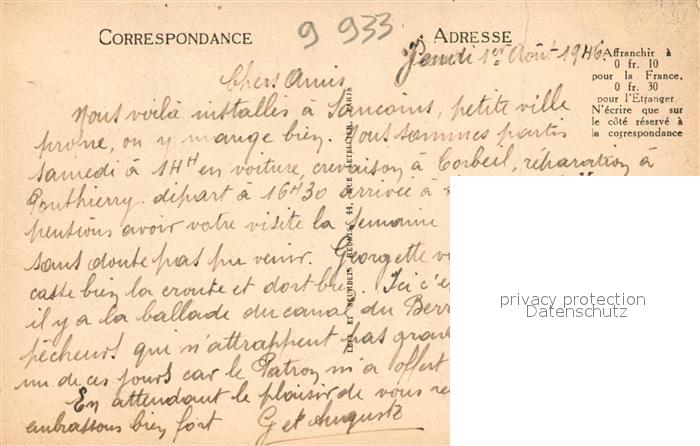 CORRESPONDANCE
9 933
ADRESSE
Jeudi 1er Août 1946.
Affranchir à
0 fr. 10
pour la France,
0 fr. 30
pour l'Etranger.
N'écrire que sur
le côté réservé à
la correspondance
Chers Amis
Nous voilà installés à Sancoins, petite ville
prone, on y mange bien. Nous sommes partis
samedi à 14H en voiture, crevaison à Corbeil, réparation à
Ponthierry départ à 16H30 arrivée à
pensions avoir votre visite la semaine
sans doute pas pu venir. Georgette
casse bien la croute et dort bien. Ici c'e
il y a la ballade du canal du Berr
pêcheurs qui n'attrappent pas gran
un de ces jours car le Patron m'a offert
En attendant le plaisir de vous re
embrassons bien fort G et Auguste
LEVY ET NEURDEIN REUNIS, 44, RUE LETELLIER, PARIS
privacy protection
Datenschutz